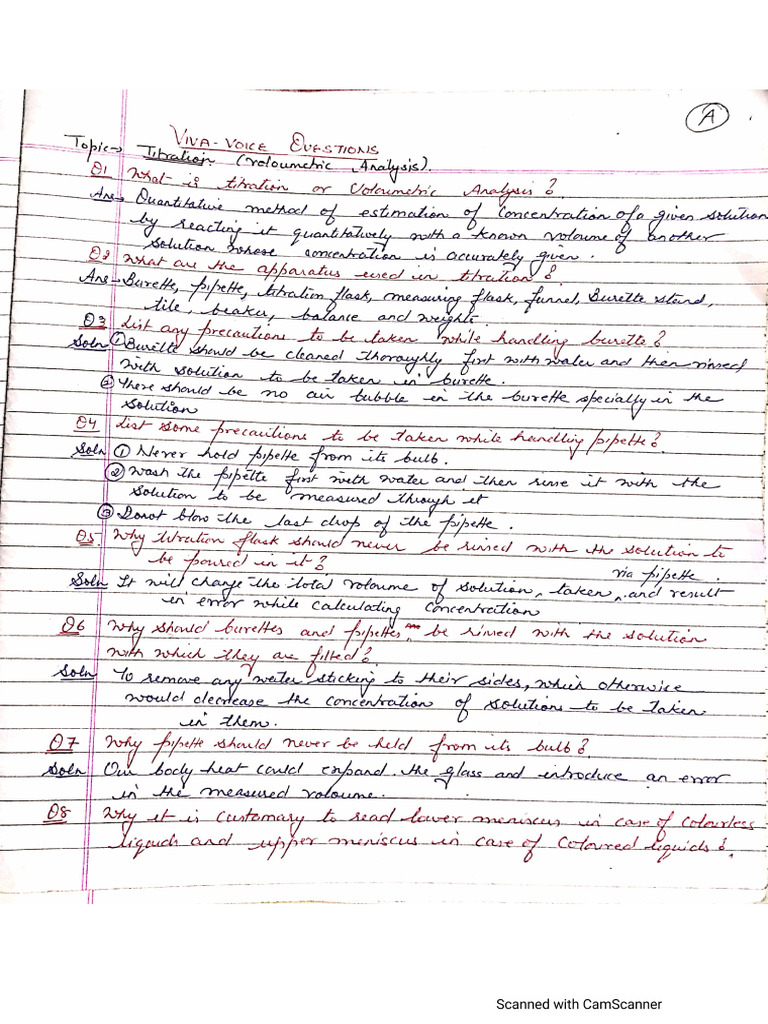 A
VIVA-VOICE QUESTIONS
Topic→ Titration (Voloumetric Analysis).
Q1 What is titration or Voloumetric Analysis?
Ans→ Quantitative method of estimation of Concentration of a given solution
by reacting it quantitatively with a known voloume of another
solution whose concentration is accurately given.
Q2 What are the apparatus used in titration?
Ans→ Burette, pipette, titration flask, measuring flask, funnel, Burette stand,
tile, beaker, balance and weights.
Q3 List any precautions to be taken while handling burette?
Soln ① Burette should be cleaned thoroughly first with water and then rinsed
with solution to be taken in burette.
② There should be no air bubble in the burette specially in the
solution
Q4 List some precautions to be taken while handling pipette?
Soln ① Never hold pipette from its bulb.
② Wash the pipette first with water and then rinse it with the
solution to be measured through it
③ Donot blow the last drop of the pipette.
Q5. Why titration flask should never be rinsed with the solution to
be poured in it?
via pipette.
Soln It will change the total voloume of solution, taken, and result
in error while calculating concentration
Q6 Why should burettes and pipettes be rinsed with the solution
with which they are filled?
Soln To remove any water sticking to their sides, which otherwise
would decrease the concentration of solutions to be taken
in them.
Q7 Why pipette should never be held from its bulb?
Soln Our body heat could expand the glass and introduce an error
in the measured voloume.
Q8 Why it is customary to read lower meniscus in case of colourless
liquids and upper meniscus in case of coloured liquids?
Scanned with CamScanner